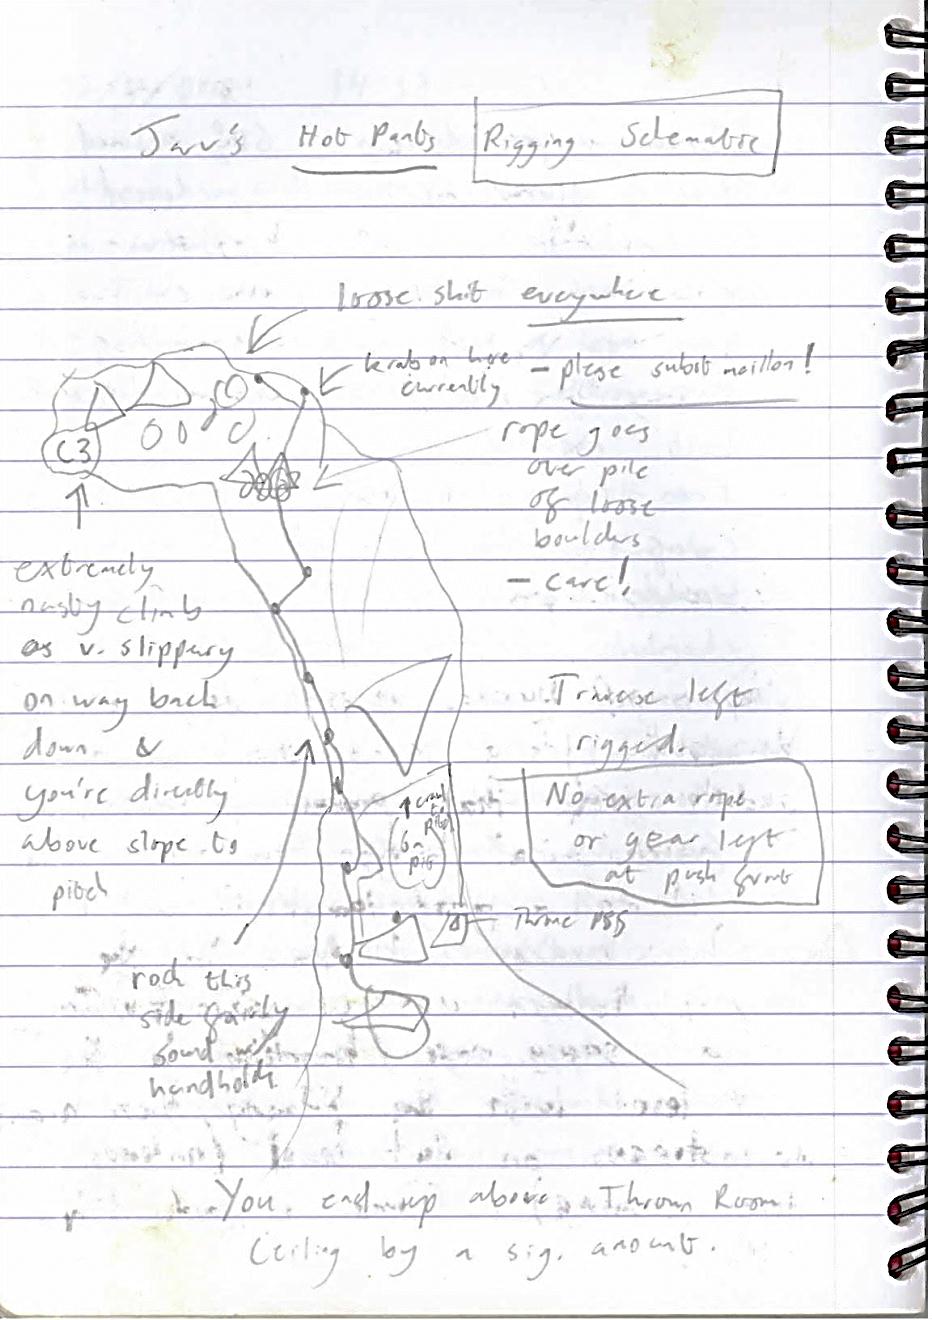 Jarv's Hot Pants Rigging Schematic
loose shit everywhere
krab on here
currently
- please subst maillon!
rope goes
over pile
of loose
boulders
- care!
C3
extremely
nasty climb
as v. slippery
on way back
down &
you're directly
above slope to
pitch
Traverse left
rigged.
No extra rope
or gear left
at push front
crawl
to
pit
Throne
rock this
side fairly
sound
handholds
You end up above Throne Room
Ceiling by a sig. amount.